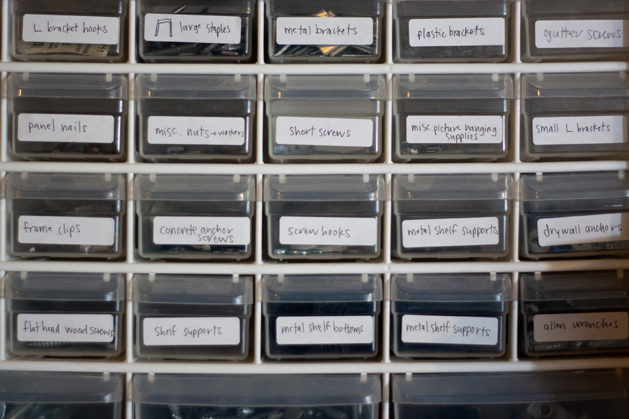 L bracket hooks
large staples
metal brackets
plastic brackets
gutter screws
panel nails
misc. nuts + washers
short screws
misc. picture hanging
supplies
small L brackets
frame clips
concrete anchor
screws
screw hooks
metal shelf supports
drywall anchors
flat head wood screws
shelf supports
metal shelf bottoms
metal shelf supports
allen wrenches